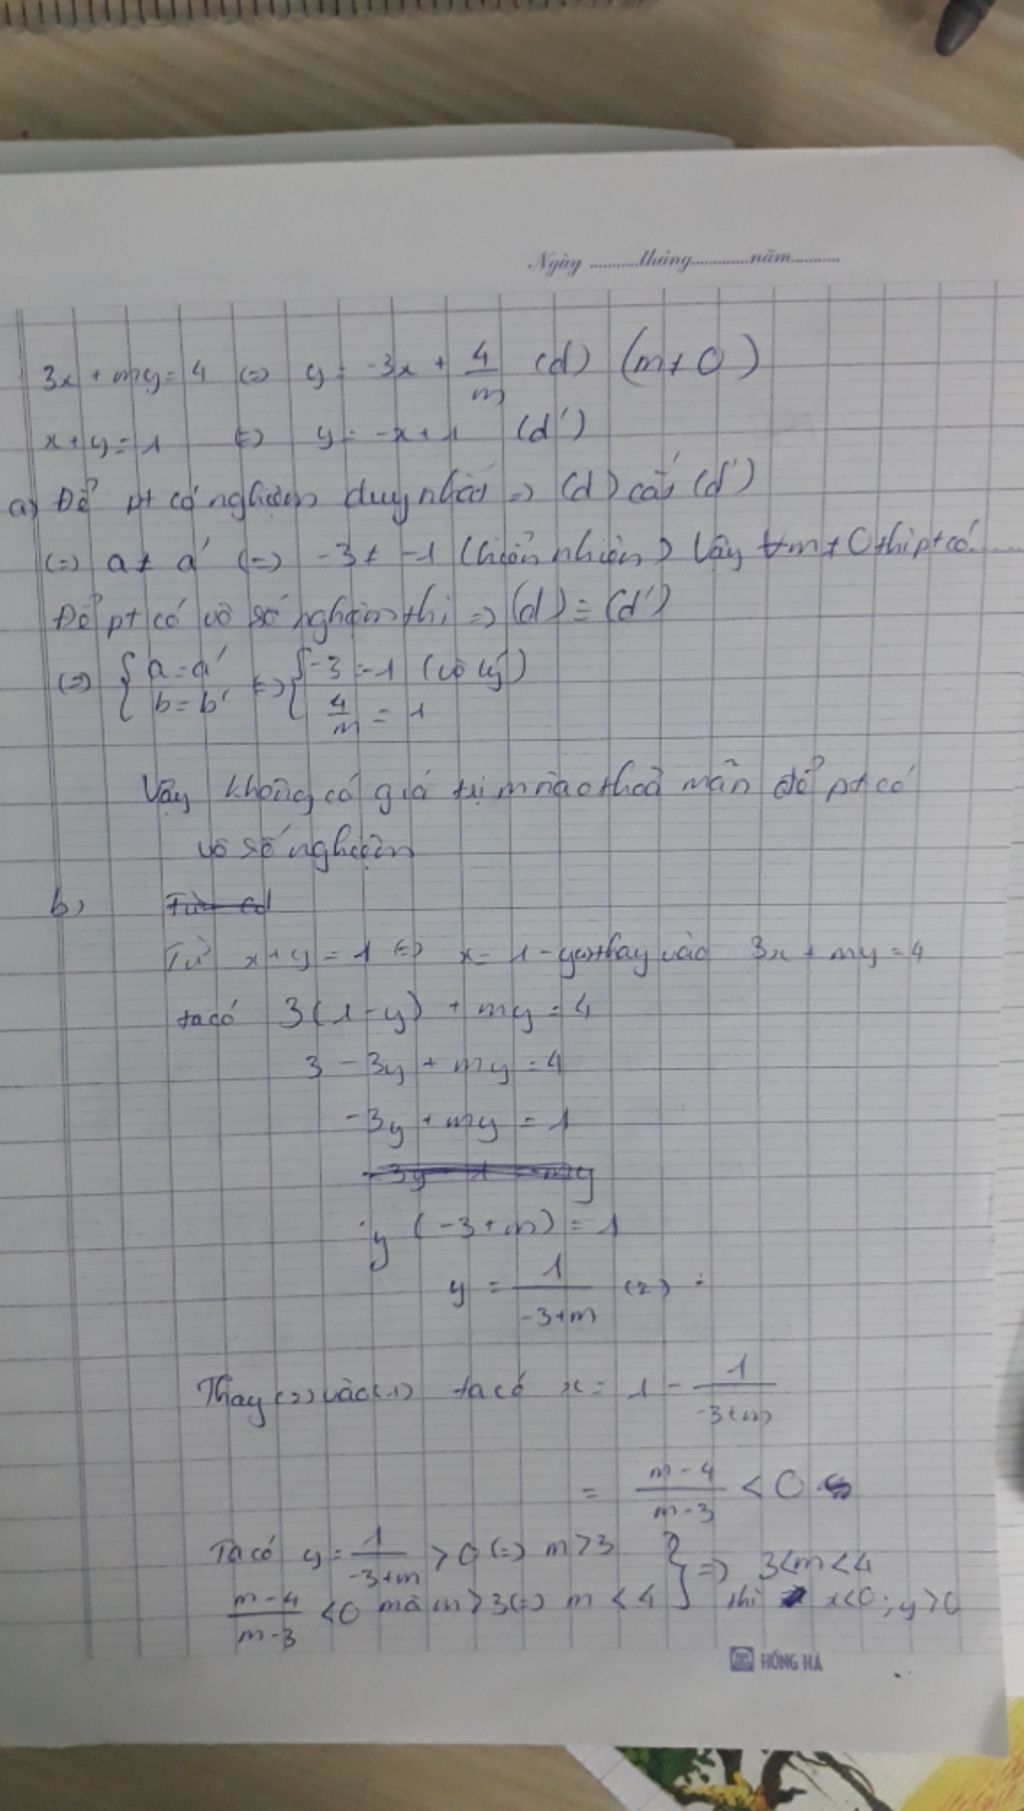 Ngày ............tháng..............năm............
3x + my = 4 (=) y = -3x + 4/m (d) (m ≠ 0)
x + y = 1 (=) y = -x + 1 (d')
a) Để pt có nghiệm duy nhất => (d) cắt (d')
(=) a ≠ a' (=) -3 ≠ -1 (hiển nhiên) Vậy ∀m ≠ 0 thì pt có ....
Để pt có vô số nghiệm thì => (d) ≡ (d')
(=) { a = a' (=) { -3 = -1 (vô lý)
b = b' 4/m = 1
Vậy không có giá trị m nào thoả mãn để pt có
vô số nghiệm
b)
Từ x + y = 1 (=) x = 1 - y thay vào 3x + my = 4
ta có 3(1 - y) + my = 4
3 - 3y + my = 4
-3y + my = 1
y (-3 + m) = 1
y = 1/(-3+m) (2)
Thay (2) vào (1) ta có x = 1 - 1/(-3+m)
= (m-4)/(m-3) < 0
Ta có y = 1/(-3+m) > 0 (=) m > 3 } => 3 < m < 4
(m-4)/(m-3) < 0 mà m > 3 (=) m < 4 thì x < 0 ; y > 0
HỒNG HÀ